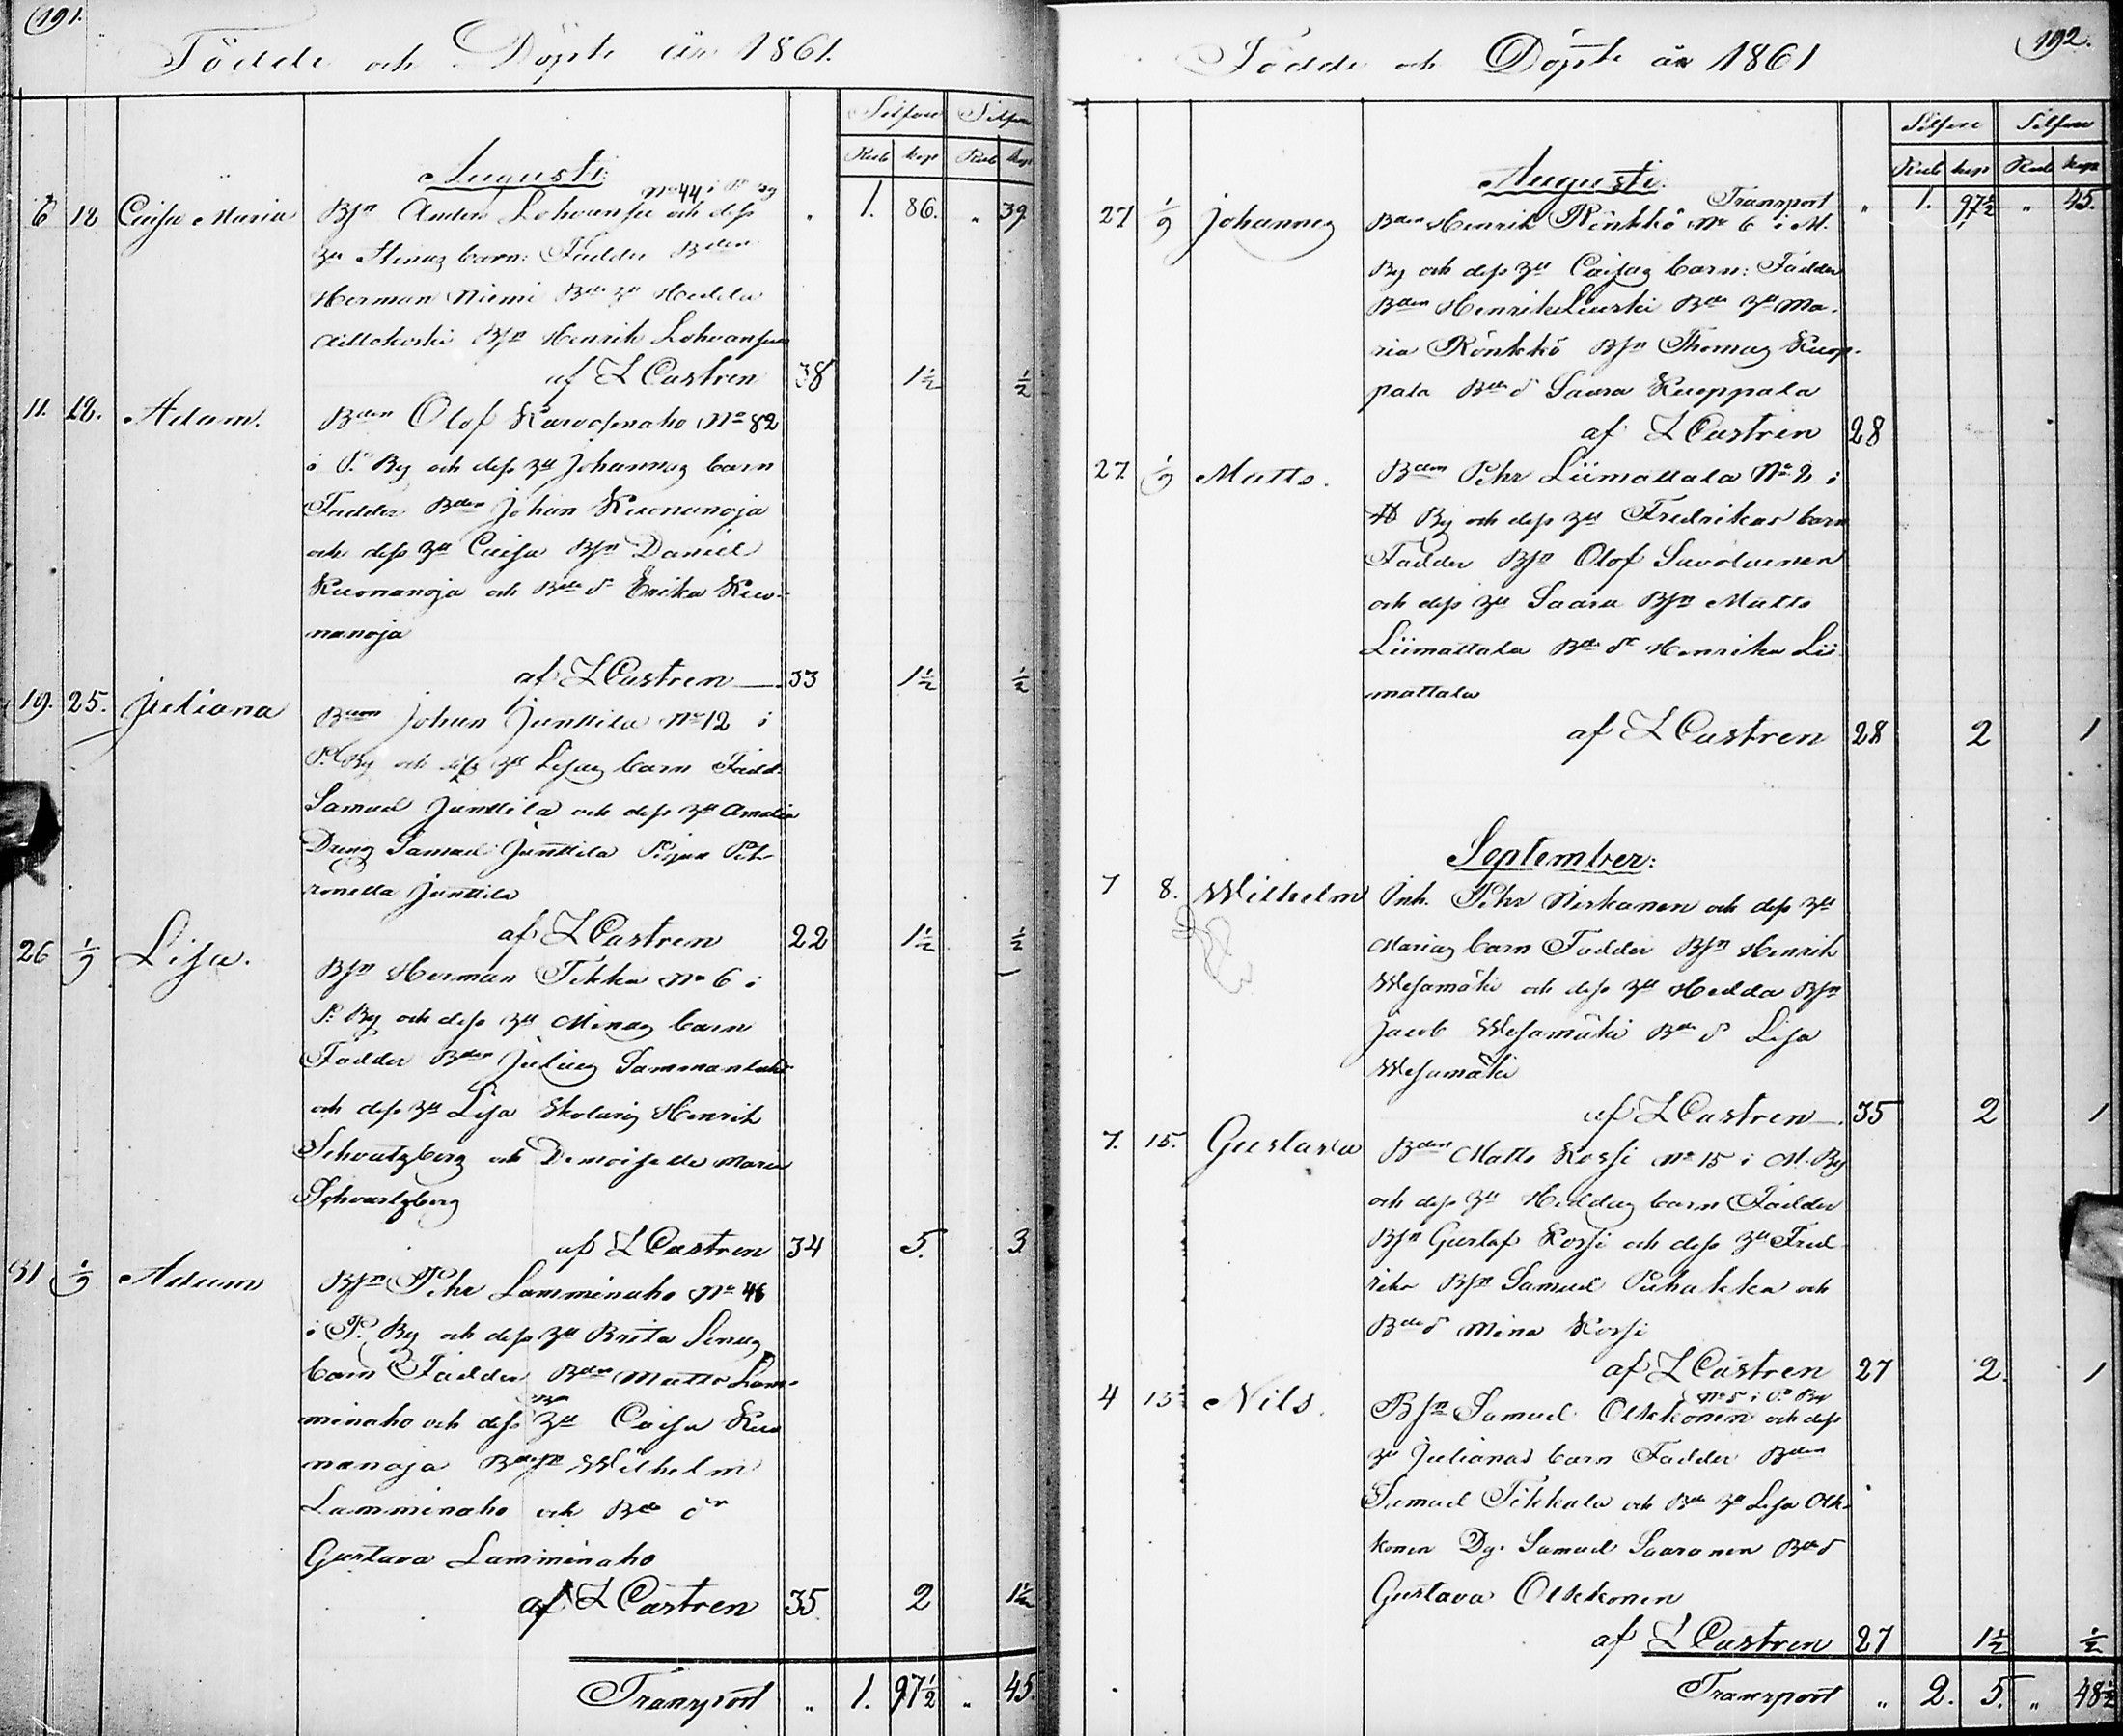 191.
Födde och Döpte år 1861.
Silfver Silfver
Rub kop Rub kop
Augusti:
No 44 i P. By
6 18 Caisa Maria Bsn Anders Lohvansuu och dess " 1. 86. " 39
Hu Stinas barn: Fadder Bden
Herman Niemi Bde Hu Hedda
Aittokoski Bsn Henrik Lohvansuu
af L Castren 38 1½ ½
11. 18. Adam. Bden Olof Karvosenaho No 82
i P. By och dess Hu Johannas barn
Fadder Bden Johan Kuonanoja
och dess Hu Caisa Bsn Daniel
Kuonanoja och Bde dr Erika Kuo-
nanoja
af L Castren 33 1½ ½
19. 25. Juliana Bden Johan Junttila No 12 i
P. By och dess Hu Lisas barn Fadd:
Samuel Junttila och dess Hu Amalia
Dreng Samuel Junttila Pigan Pet-
ronella Junttila
af L Castren 22 1½ ½
26 1/9 Lisa. Bsn Herman Tikka No 6 i
P. By och dess Hu Minas barn
Fadder Bden Julius Sammanlaht
och dess Hu Lisa Skolarig Henrik
Schvatzberg och Demoiselle Maria
Schvartzberg
af L Castren 34 5. 3
31 1/9 Adam Bsn Pehr Lamminaho No 48
i P. By och dess Hu Brita Senas
barn Fadder Bden Matts Lam-
minaho och dess Hu Caisa Kuo
nanoja Wilhelm
Lamminaho och Bde dr
Gustava Lamminaho
af L Castren 35 2 1½
Transport " 1. 97½ " 45.
192.
Födde och Döpte år 1861
Silfver Silfver
Rub kop Rub kop
Augusti:
Transport " 1. 97½ " 45.
27 1/9 Johannes Bden Henrik Rönkkö No 6 i M.
By och dess Hu Caisas barn: Fadder
Bden Henrik Leiviskä Bde Hu Ma-
ria Rönkkö Bsn Thomas Kuop-
pala Bde dr Saara Kuoppala
af L Castren 28
27. 1/9 Matts. Bden Pehr Liimattala No 2 i
By och dess Hu Fredrikas barn
Fadder Bsn Olof Savolainen
och dess Hu Saara Bsn Matts
Liimattala Bde dr Henrika Lii-
mattala
af L Castren 28 2 1
September:
7 8. Wilhelm Inh. Pehr Niskanen och dess Hu
Marias barn Fadder Bsn Henrik
Wesamäki och dess Hu Hedda Bsn
Jacob Wesamäki Bde dr Lisa
Wesamäki
af L Castren 35 2 1
7. 15. Gustava Bden Matts Kossi No 15 i M. By
och dess Hu Heddas barn Fadder
Bsn Gustaf Kossi och dess Hu Fred-
rika Bsn Samuel Puhakka och
Bde dr Mina Kossi
af L Castren 27 2. 1
No 5 i P. By
4 15 Nils. Bsn Samuel Olkkonen och dess
Hu Julianas barn Fadder Bden
Samuel Tikkala och Bde Hu Lisa Olk-
konen Dg. Samuel Saaranen Bde dr
Gustava Olkkonen
af L Castren 27 1½ ½
Transport " 2. 5. " 48½